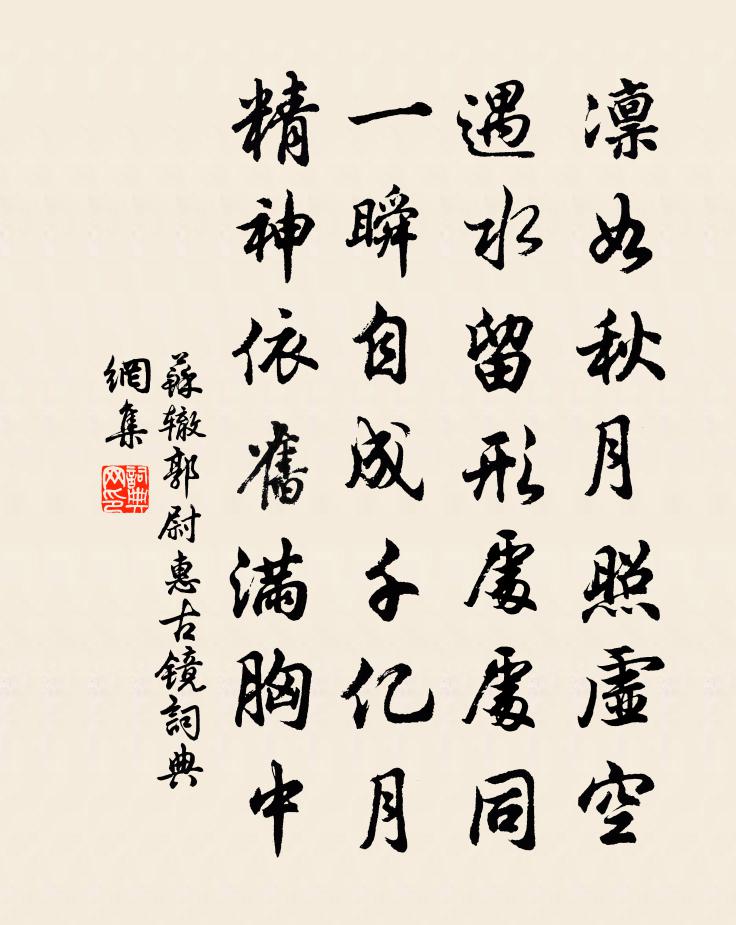 凛如秋月照虛空
遇水留形處處同
一瞬自成千亿月
精神依舊滿胸中
蘇辙郭尉惠古镜詞典
網集
詞典
网印